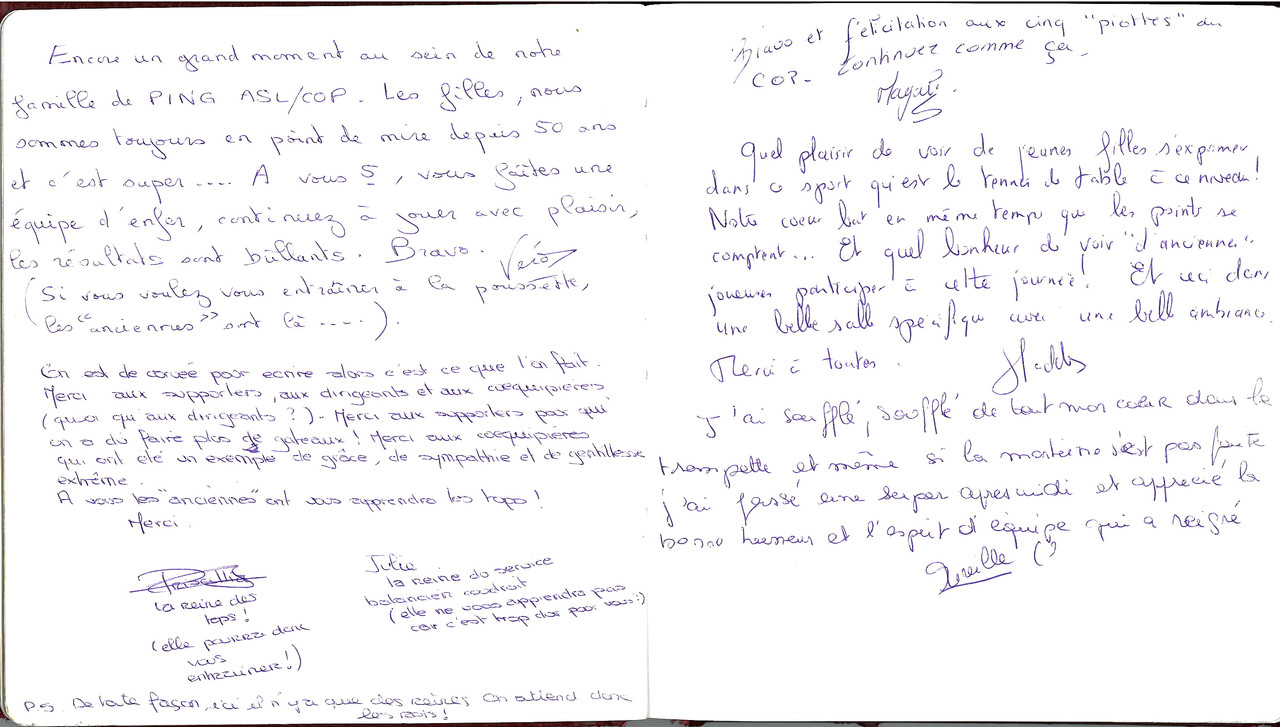 Encore un grand moment au sein de notre
famille de PING ASL/COP. Les filles, nous
sommes toujours en point de mire depuis 50 ans
et c'est super.... A vous 5, vous faîtes une
équipe d'enfer, continuez à jouer avec plaisir,
les résultats sont brillants. Bravo. Véro
(Si vous voulez vous entraîner à la poussette,
les "anciennes" sont là ....).
On est de corvée pour ecrire alors c'est ce que l'on fait.
Merci aux supporters, aux dirigeants et aux coéquipières
(quoi qu'aux dirigeants ?) - Merci aux supporters pour qui
on a du faire plus de gateaux ! Merci aux coéquipières
qui ont été un exemple de grâce, de sympathie et de gentillesse
extrême.
A vous les "anciennes" ont vous apprendra les tops !
Merci.
Priscillia
la reine des
tops !
(elle pourra donc
vous
entrainer !)
Julie
la reine du service
balancier coudroit
(elle ne vous apprendra pas
car c'est trop dur pour vous !)
P.S. De toute façon, ici il n'y a que des reines on attend donc
les rois !
Bravo et félicitation aux cinq "piottes" du
COP - Continuez comme ça.
Quel plaisir de voir de jeunes filles s'exprimer
dans ce sport qu'est le tennis de table à ce niveau !
Notre coeur bat en même temps que les points se
comptent... Et quel bonheur de voir "d'anciennes"
joueuses participer à cette journée ! Et ceci dans
une belle salle spécifique avec une belle ambiance.
Merci à toutes.
J'ai soufflé, soufflé de tout mon coeur dans la
trompette et même si la matine s'est pas faute
j'ai passé une super apresmidi et apprécié la
bonne humeur et l'esprit d'équipe qui a reigné
Mireille